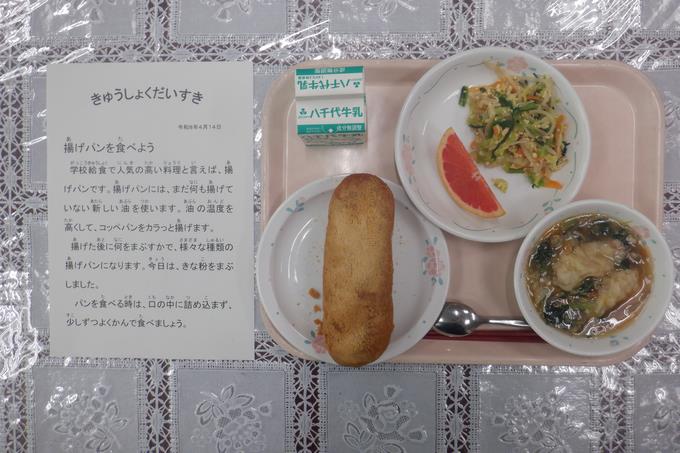 きゅうしょくだいすき
令和8年4月14日
揚げパンを食べよう
学校給食で人気の高い料理と言えば、揚
げパンです。揚げパンには、まだ何も揚げて
いない新しい油を使います。油の温度を
高くして、コッペパンをカラっと揚げます。
揚げた後に何をまぶすかで、様々な種類の
揚げパンになります。今日は、きな粉をまぶ
しました。
パンを食べる時は、口の中に詰め込まず、
少しずつよくかんで食べましょう。
八千代牛乳
八千代牛乳
成分無調整